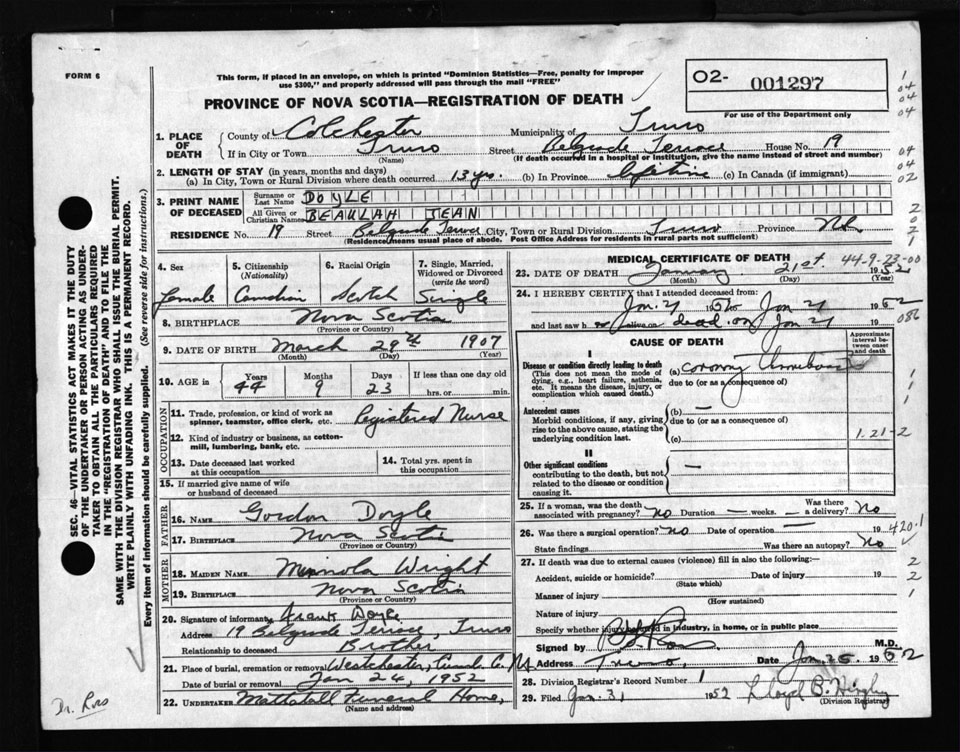 FORM 6
This form, if placed in an envelope, on which is printed "Dominion Statistics—Free, penalty for improper
use $300," and properly addressed will pass through the mail "FREE"
PROVINCE OF NOVA SCOTIA—REGISTRATION OF DEATH
O2- 001297
For use of the Department only
1. PLACE OF DEATH
County of Colchester Municipality of Truro
If in City or Town Truro Street Belgrade Terrace House No. 19
(Name) (If death occurred in a hospital or institution, give the name instead of street and number)
2. LENGTH OF STAY (in years, months and days)
(a) In City, Town or Rural Division where death occurred 13 yrs. (b) In Province lifetime (c) In Canada (if immigrant)
3. PRINT NAME OF DECEASED
Surname or Last Name DOYLE
All Given or Christian Names BEAULAH JEAN
RESIDENCE No. 19 Street Belgrade Terrace City, Town or Rural Division Truro Province NS
(Residence means usual place of abode. Post Office Address for residents in rural parts not sufficient)
4. Sex
female
5. Citizenship
(Nationality)
Canadian
6. Racial Origin
Scotch
7. Single, Married,
Widowed or Divorced
(write the word)
Single
8. BIRTHPLACE Nova Scotia
(Province or Country)
9. DATE OF BIRTH March 29th 1907
(Month) (Day) (Year)
10. AGE in Years Months Days If less than one day old
44 9 23 hrs. or min.
OCCUPATION
11. Trade, profession, or kind of work as
spinner, teamster, office clerk, etc. Registered Nurse
12. Kind of industry or business, as cotton-
mill, lumbering, bank, etc.
13. Date deceased last worked
at this occupation
14. Total yrs. spent in
this occupation
15. If married give name of wife
or husband of deceased
FATHER
16. NAME Gordon Doyle
17. BIRTHPLACE Nova Scotia
(Province or Country)
MOTHER
18. MAIDEN NAME Wright
19. BIRTHPLACE Nova Scotia
(Province or Country)
20. Signature of informant Frank Doyle
Address 19 Belgrade Terrace, Truro
Relationship to deceased Brother
21. Place of burial, cremation or removal Westchester, Cumb. Co. NS
Date of burial or removal Jan 24, 1952
22. UNDERTAKER Mattatall Funeral Home,
(Name and address)
MEDICAL CERTIFICATE OF DEATH
44-9-23-00
23. DATE OF DEATH January 21st. 1952
(Month) (Day) (Year)
24. I HEREBY CERTIFY that I attended deceased from
Jan. 21 1952 to Jan 21 1952
and last saw h er alive on dead on Jan 21 19
086
CAUSE OF DEATH
Approximate
interval be-
tween onset
and death
I
Disease or condition directly leading to death
(This does not mean the mode of
dying, e.g., heart failure, asthenia,
etc. It means the disease, injury, or
complication which caused death.)
(a) coronary thrombosis
due to (or as a consequence of)
Antecedent causes
Morbid conditions, if any, giving
rise to the above cause, stating the
underlying condition last.
(b) —
due to (or as a consequence of)
(c)
1-21-2
II
Other significant conditions
contributing to the death, but not
related to the disease or condition
causing it.
—
25. If a woman, was the death
associated with pregnancy? no Duration — weeks. — Was there
a delivery? No
26. Was there a surgical operation? no Date of operation — 19
420.1
State findings Was there an autopsy? No
27. If death was due to external causes (violence) fill in also the following:—
Accident, suicide or homicide? Date of injury 19
(State which)
Manner of injury
(How sustained)
Nature of injury
Specify whether injury occurred in industry, in home, or in public place
Signed by Ross M.D.
Address Truro Date Jan. 25. 1952
28. Division Registrar's Record Number 1
29. Filed Jan. 31 1952 Lloyd B.
(Division Registrar)
SEC. 46—VITAL STATISTICS ACT MAKES IT THE DUTY
OF THE UNDERTAKER OR PERSON ACTING AS UNDER-
TAKER TO OBTAIN ALL THE PARTICULARS REQUIRED
IN THE "REGISTRATION OF DEATH" AND TO FILE THE
SAME WITH THE DIVISION REGISTRAR WHO SHALL ISSUE THE BURIAL PERMIT.
WRITE PLAINLY WITH UNFADING INK. THIS IS A PERMANENT RECORD.
Every item of information should be carefully supplied. (See reverse side for instructions.)
Dr. Ross
1
04
04
04
04
04
02
2
0
2
1
1
1
1
2
2
1